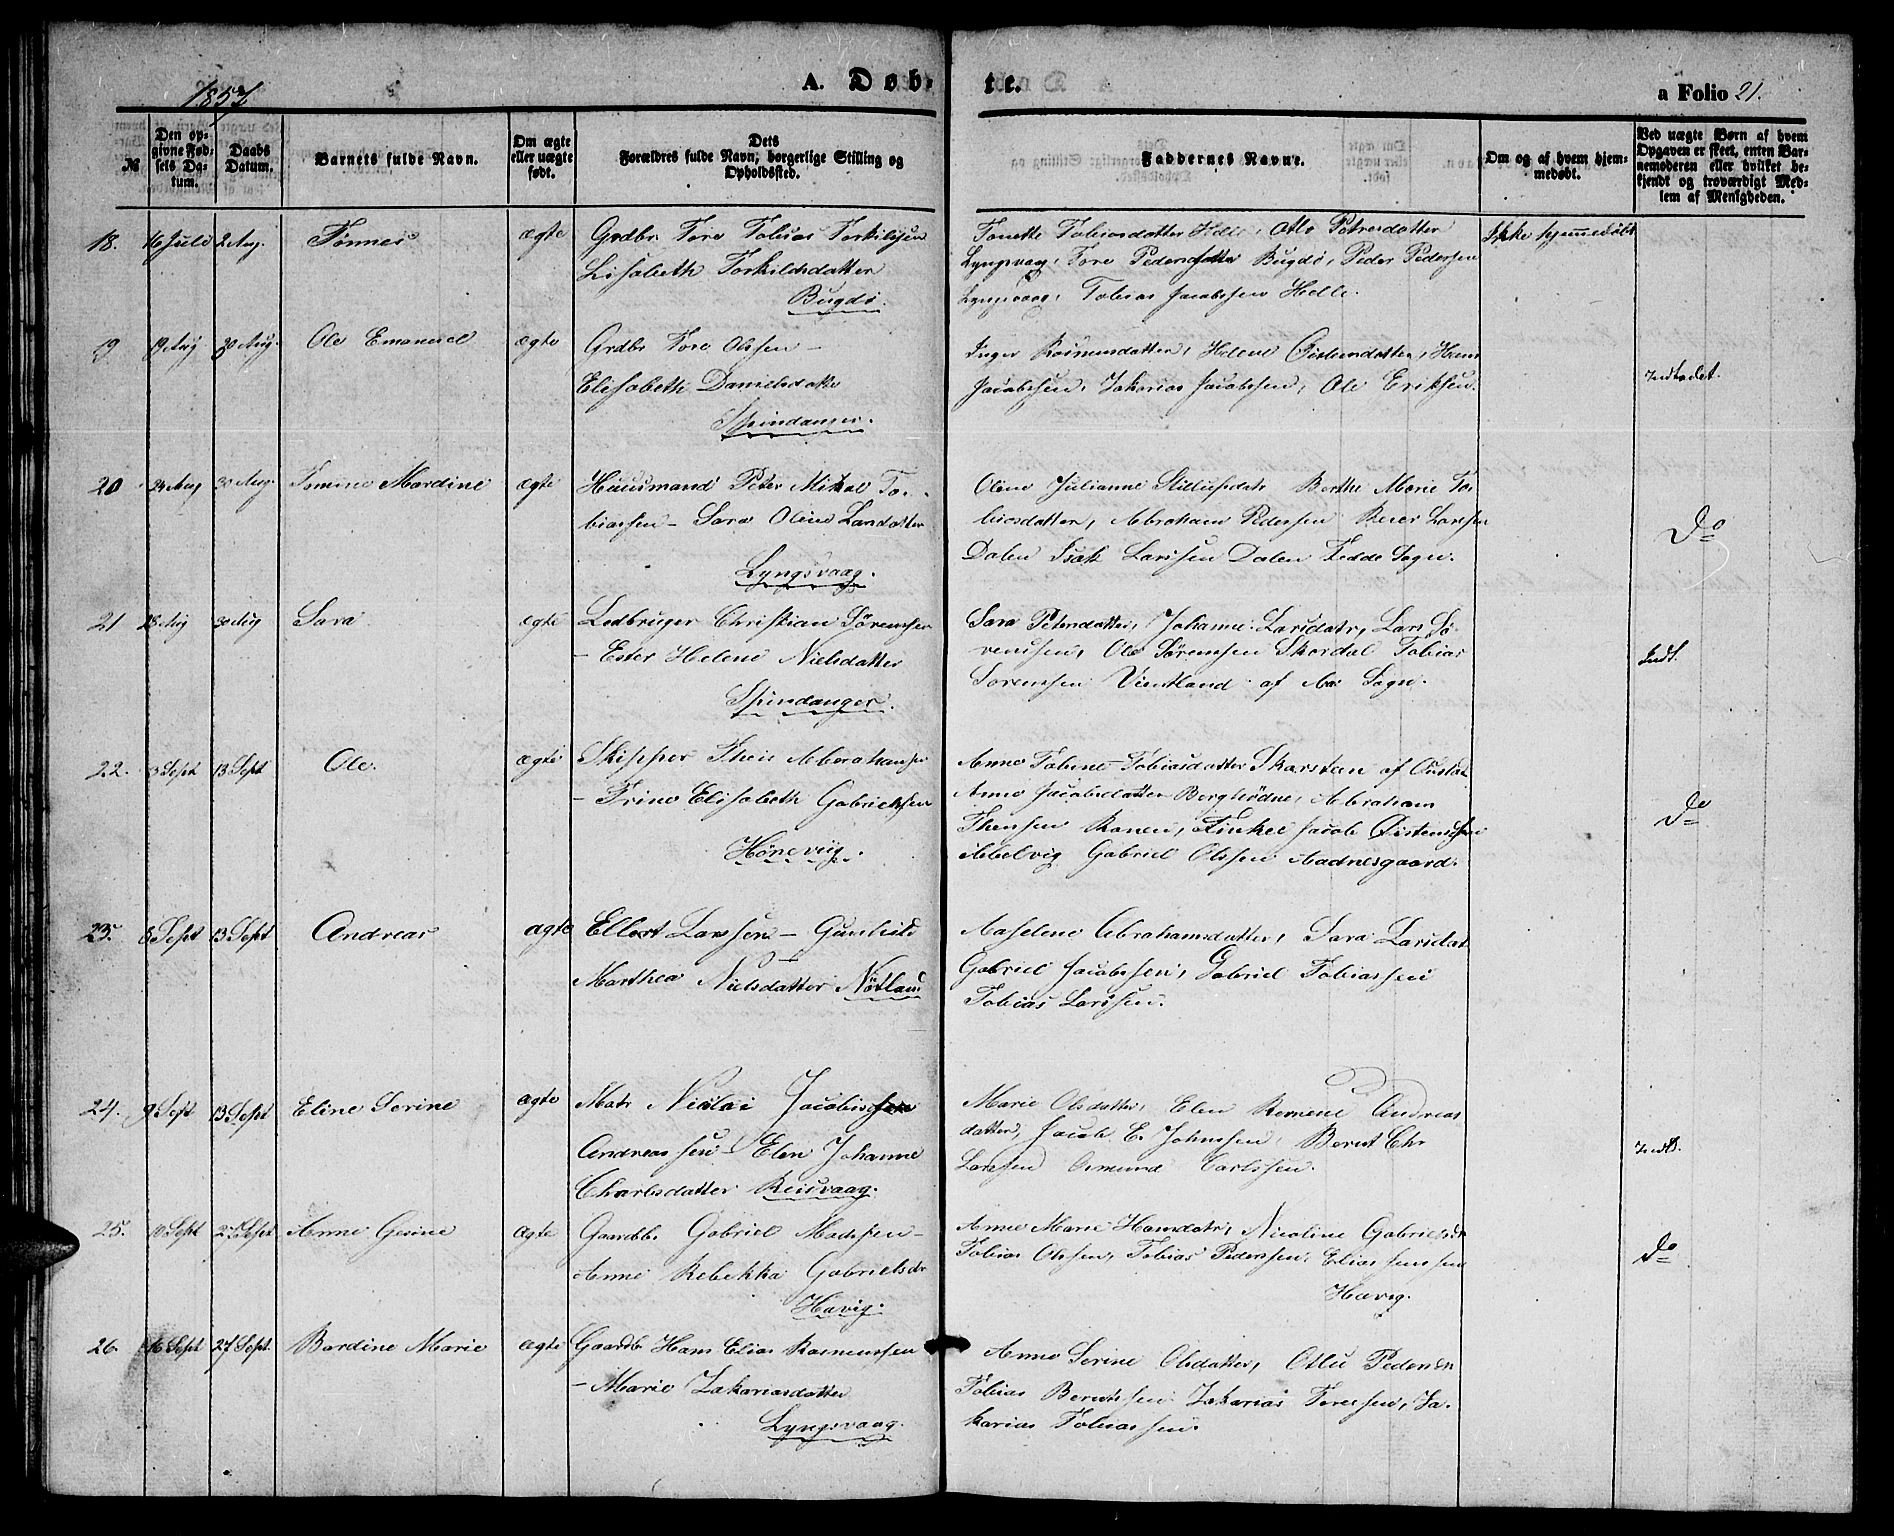 1857
A. Døb-
te.
a Folio 21.
№
Den op-
givne Fød-
sels Da-
tum.
Daabs
Datum.
Barnets fulde Navn.
Om ægte
eller uægte
født.
Dets
Forældres fulde Navn, borgerlige Stilling og
Opholdssted.
Faddernes Navne.
Om og af hvem hjem-
medøbt.
Ved uægte Børn af hvem
Opgaven er skeet, enten Bar-
nemoderen eller hvilket be-
kjendt og troværdigt Med-
lem af Menigheden.
18. 16 Juli 2 Aug. Tønnes ægte Grdbr Tore Tobias Torkildsen
Lisabeth Torkildsdatter
Bugdø.
Tonette Tobiasdatter Helle, Petersdatter
Lyngsvaag, Tore Pedersen Bugdø, Peder Pedersen
Lyngsvaag, Tobias Jacobsen Helle.
Ikke hjemmedøbt
19. 19 Aug 30 Aug. Ole Emanuel ægte Grdbr Tore Olssen –
Elisabeth Danielsdatte
Spindanger.
Inger Rasmusdatter, Helene datter, Hans
Jacobssen, Zakarias Jacobssen, Ole Eriksen.
20 24 Aug 30 Aug. Tomine Mardine ægte Huusmand Peter Mikal To-
biassen – Sara Oline Larsdatter
Lyngsvaag.
Oline Julianne Berthe Marie To-
biasdatter, Abraham Pedersen Larssen
Dalen Isak Larssen Dalen Fedde Sogn.
Do
21 28 Aug 30 Aug Sara ægte Ledbruger Christian Sørenssen
– Ester Helene Nielsdatter
Spindanger.
Sara Petersdatter, Johanne Larsdatr, Lars Sø-
renssen, Ole Sørenssen Skordal Tobias
Sørenssen af Aa Sogn.
Indt.
22. 3 Sept 13 Sept Ole. ægte Skipper Theis Aberahamsen
– Trine Elisabeth Gabrielssen
Hønevig.
Anne Tobine Tobiasdatter Skarsteen af
Anne Jacobsdatter Berghødne, Abraham
Theissen Ranen, Jacob
Abelvig Gabriel Olssen Aadnesgaard.
Do
23. 6 Sept 13 Sept Andreas ægte Ellert Larssen – Gunhild
Marthea Nielsdatter Nøtland
Aaselene Abrahamsdatter, Sara Larsdat
Gabriel Jacobssen, Gabriel Tobiassen
Tobias Larssen.
24. 9 Sept 13 Sept Eline Serine ægte Matr Nicolai
Andreassen – Elen Johanne
Charlesdatter Reisvaag.
Marie Olsdatter, Elen Andreas
datter, Jacob E. Johnssen, Bernt Chr
Larssen Osmund Carlssen.
Indt.
25. 10 Sept 27 Sept Anne Gesine ægte Gaardb. Gabriel Madssen –
Anne Rebekka Gabrielsdr
Havig.
Anne Marie Hansdatr, Nicoline Gabrielsdr
Tobias Olssen, Tobias Pederssen, Elias Jenssen
Havig.
Do
26. 16 Sept 27 Sept. Bardine Marie ægte Gaardb Hans Elias Rasmussen
– Marie Zakariasdatter
Lyngsvaag.
Anne Serine Olsdatter, Pedersen
Tobias Berntssen Zakarias Toressen, Za-
karias Tobiassen.